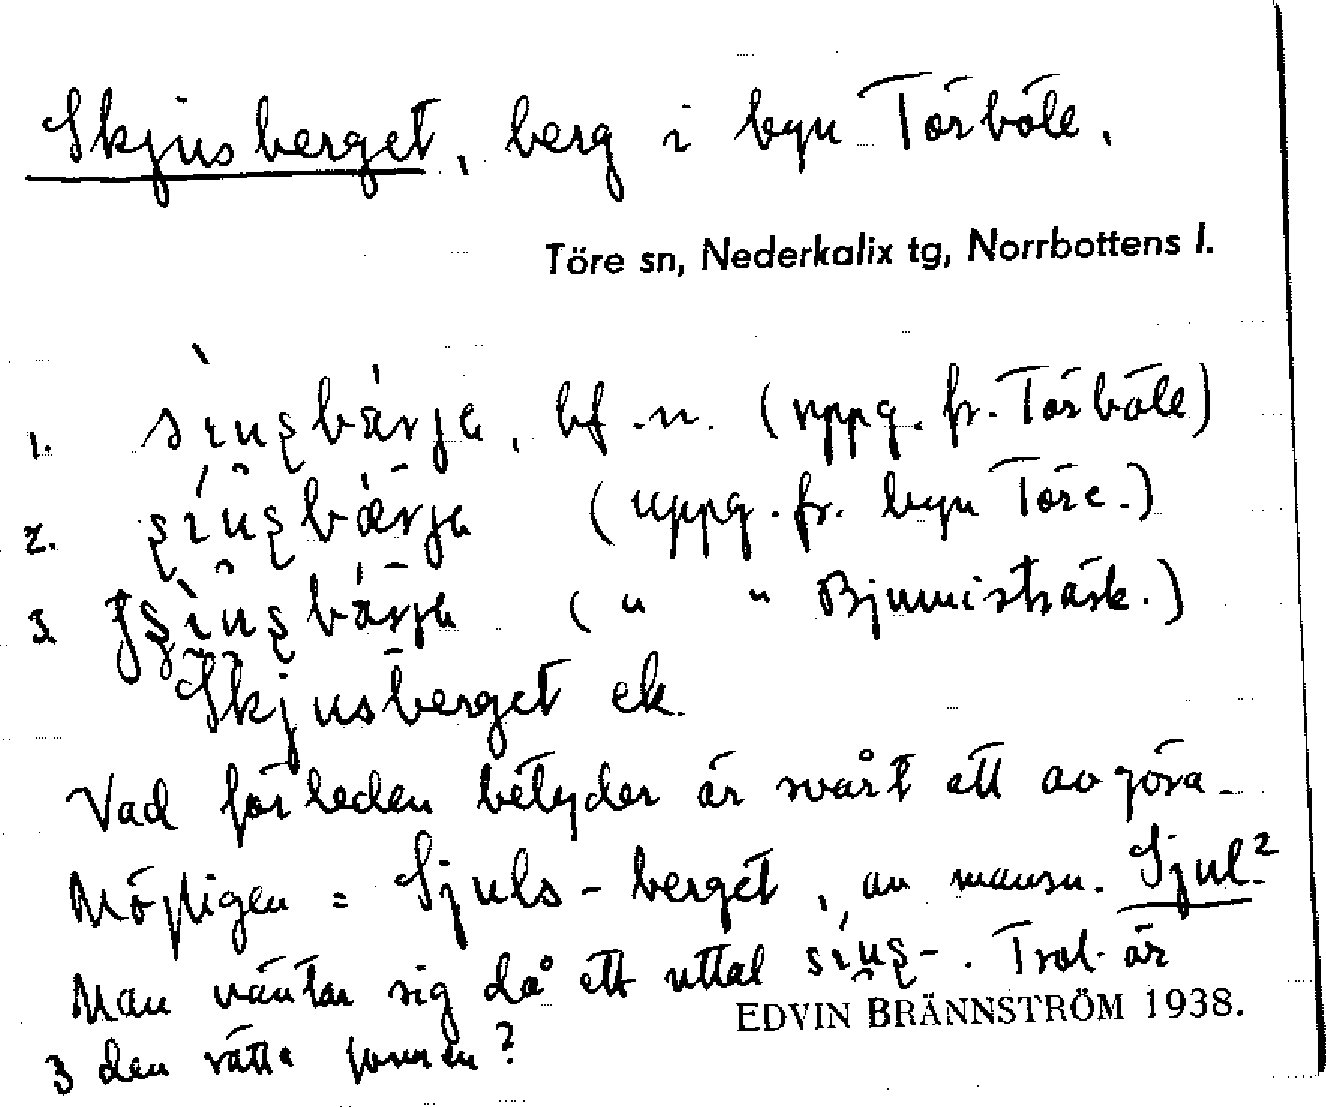 Skjusberget, berg i byn Törböle.
Töre sn, Nederkalix tg, Norrbottens l.
1. bf. n. (uppg. fr. Törböle)
2. (uppg. fr. byn Töre.)
3. ( " " Bjumisträsk.)
Skjusberget ek.
Vad förleden betyder är svårt att avgöra.
Möjligen = Sjuls-berget, av mansn. Sjul?
Man väntar sig då ett uttal Trol. är
EDVIN BRÄNNSTRÖM 1938.
3 den rätta formen?